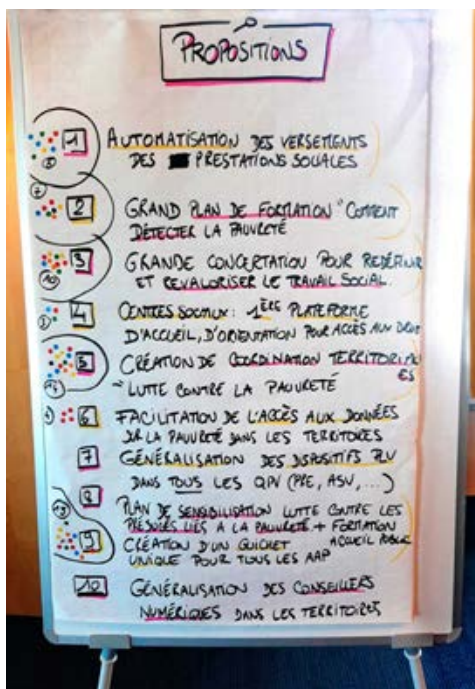 PROPOSITIONS
1 AUTOMATISATION DES VERSEMENTS
DES PRESTATIONS SOCIALES
2 GRAND PLAN DE FORMATION "COMMENT
DÉTECTER LA PAUVRETÉ
3 GRANDE CONCERTATION POUR REDÉFINIR
ET REVALORISER LE TRAVAIL SOCIAL.
4 CENTRES SOCIAUX : 1ÈRE PLATEFORME
D'ACCUEIL, D'ORIENTATION POUR ACCÈS AUX DROIT
5 CRÉATION DE COORDINATION TERRITORIALES
LUTTE CONTRE LA PAUVRETÉ
6 FACILITATION DE L'ACCÈS AUX DONNÉES
SUR LA PAUVRETÉ DANS LES TERRITOIRES
7 GÉNÉRALISATION DES DISPOSITIFS PLV
DANS TOUS LES QPV (PRE, ASV, ...)
8 PLAN DE SENSIBILISATION LUTTE CONTRE LES
PRÉJUGÉS LIÉS A LA PAUVRETÉ + FORMATION
ACCUEIL PUBLIC
9 CRÉATION D'UN GUICHET
UNIQUE POUR TOUS LES AAP
10 GÉNÉRALISATION DES CONSEILLERS
NUMÉRIQUES DANS LES TERRITOIRES